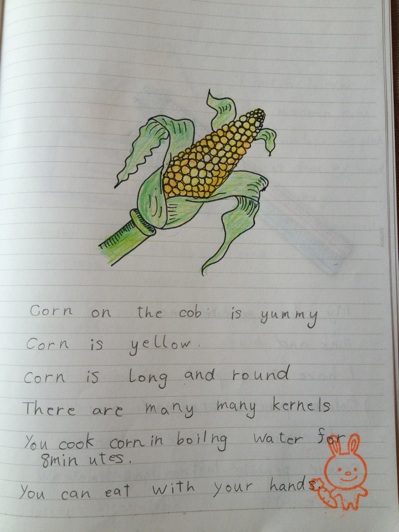 Corn on the cob is yummy
Corn is yellow.
Corn is long and round
There are many many kernels
You cook corn in boilng water for
8min utes.
You can eat with your hands.